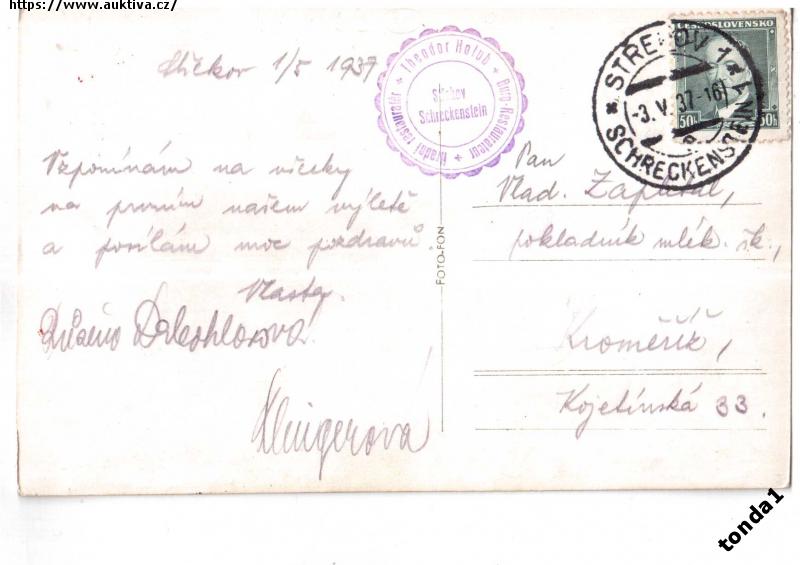 https://www.auktiva.cz/
Střekov 1/5 1937
Theodor Holub * Burg-Restaurateur * hradní restauratér *
Střekov
Schreckenstein
ČESKOSLOVENSKO
50h 50h
* STŘEKOV 1 *
-3.V.37-16
SCHRECKENSTEIN 1
Vzpomínám na všecky
na prvním našem výletě
a posílám moc pozdravů
Vlasta.
Růžena
Klingerová
FOTO-FON
Pan
Vlad. Zapletal,
pokladník mlék. šk.,
Kroměříž,
Kojetínská 33.
tonda1